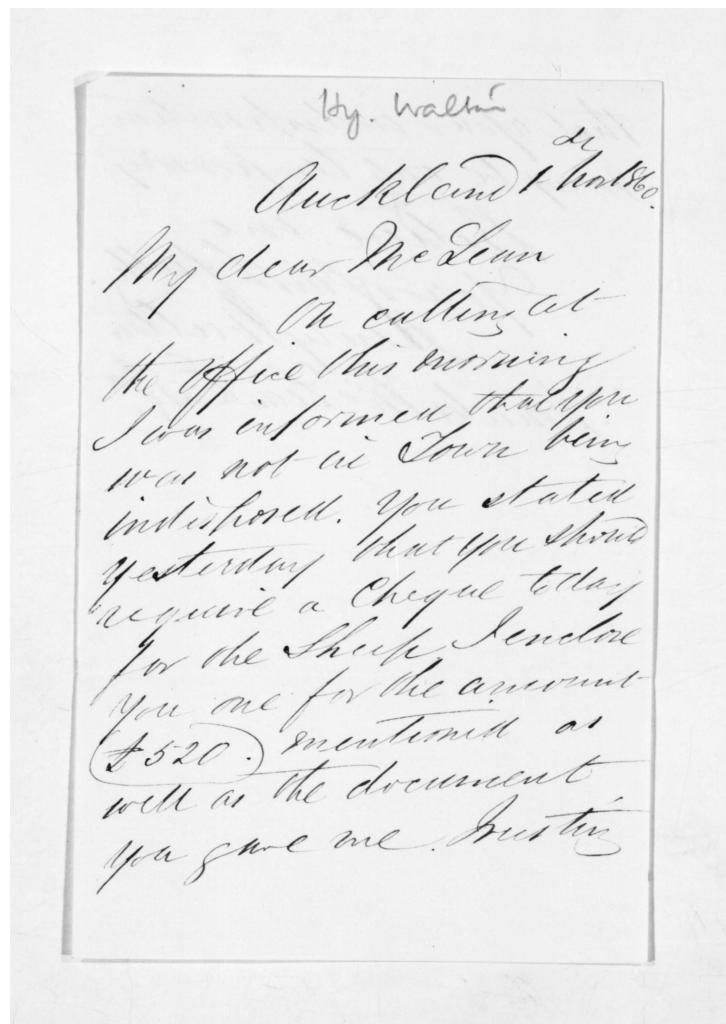 Hy. Walton
Auckland 1st Nov 1860.
My dear McLean
On calling at
the Office this morning
I was informed that you
was not in Town being
indisposed. You stated
yesterday that you should
require a Cheque today
for the Sheep I enclose
you one for the amount
£520. mentioned as
well as the document
you gave me. Trusting